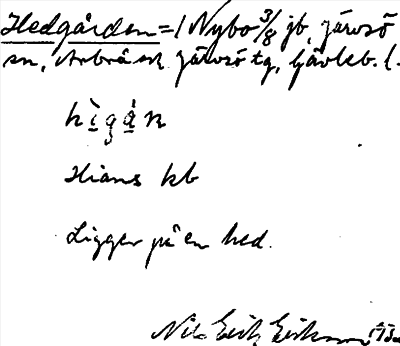 Hedgården = 1 Nybo 3/8 jb, Järvsö
sn, Arbrå och Järvsö tg, Gävleb. l.
hi̱gå̱n
Hians kb
Ligger på en hed.
Nils Erik Eriksson